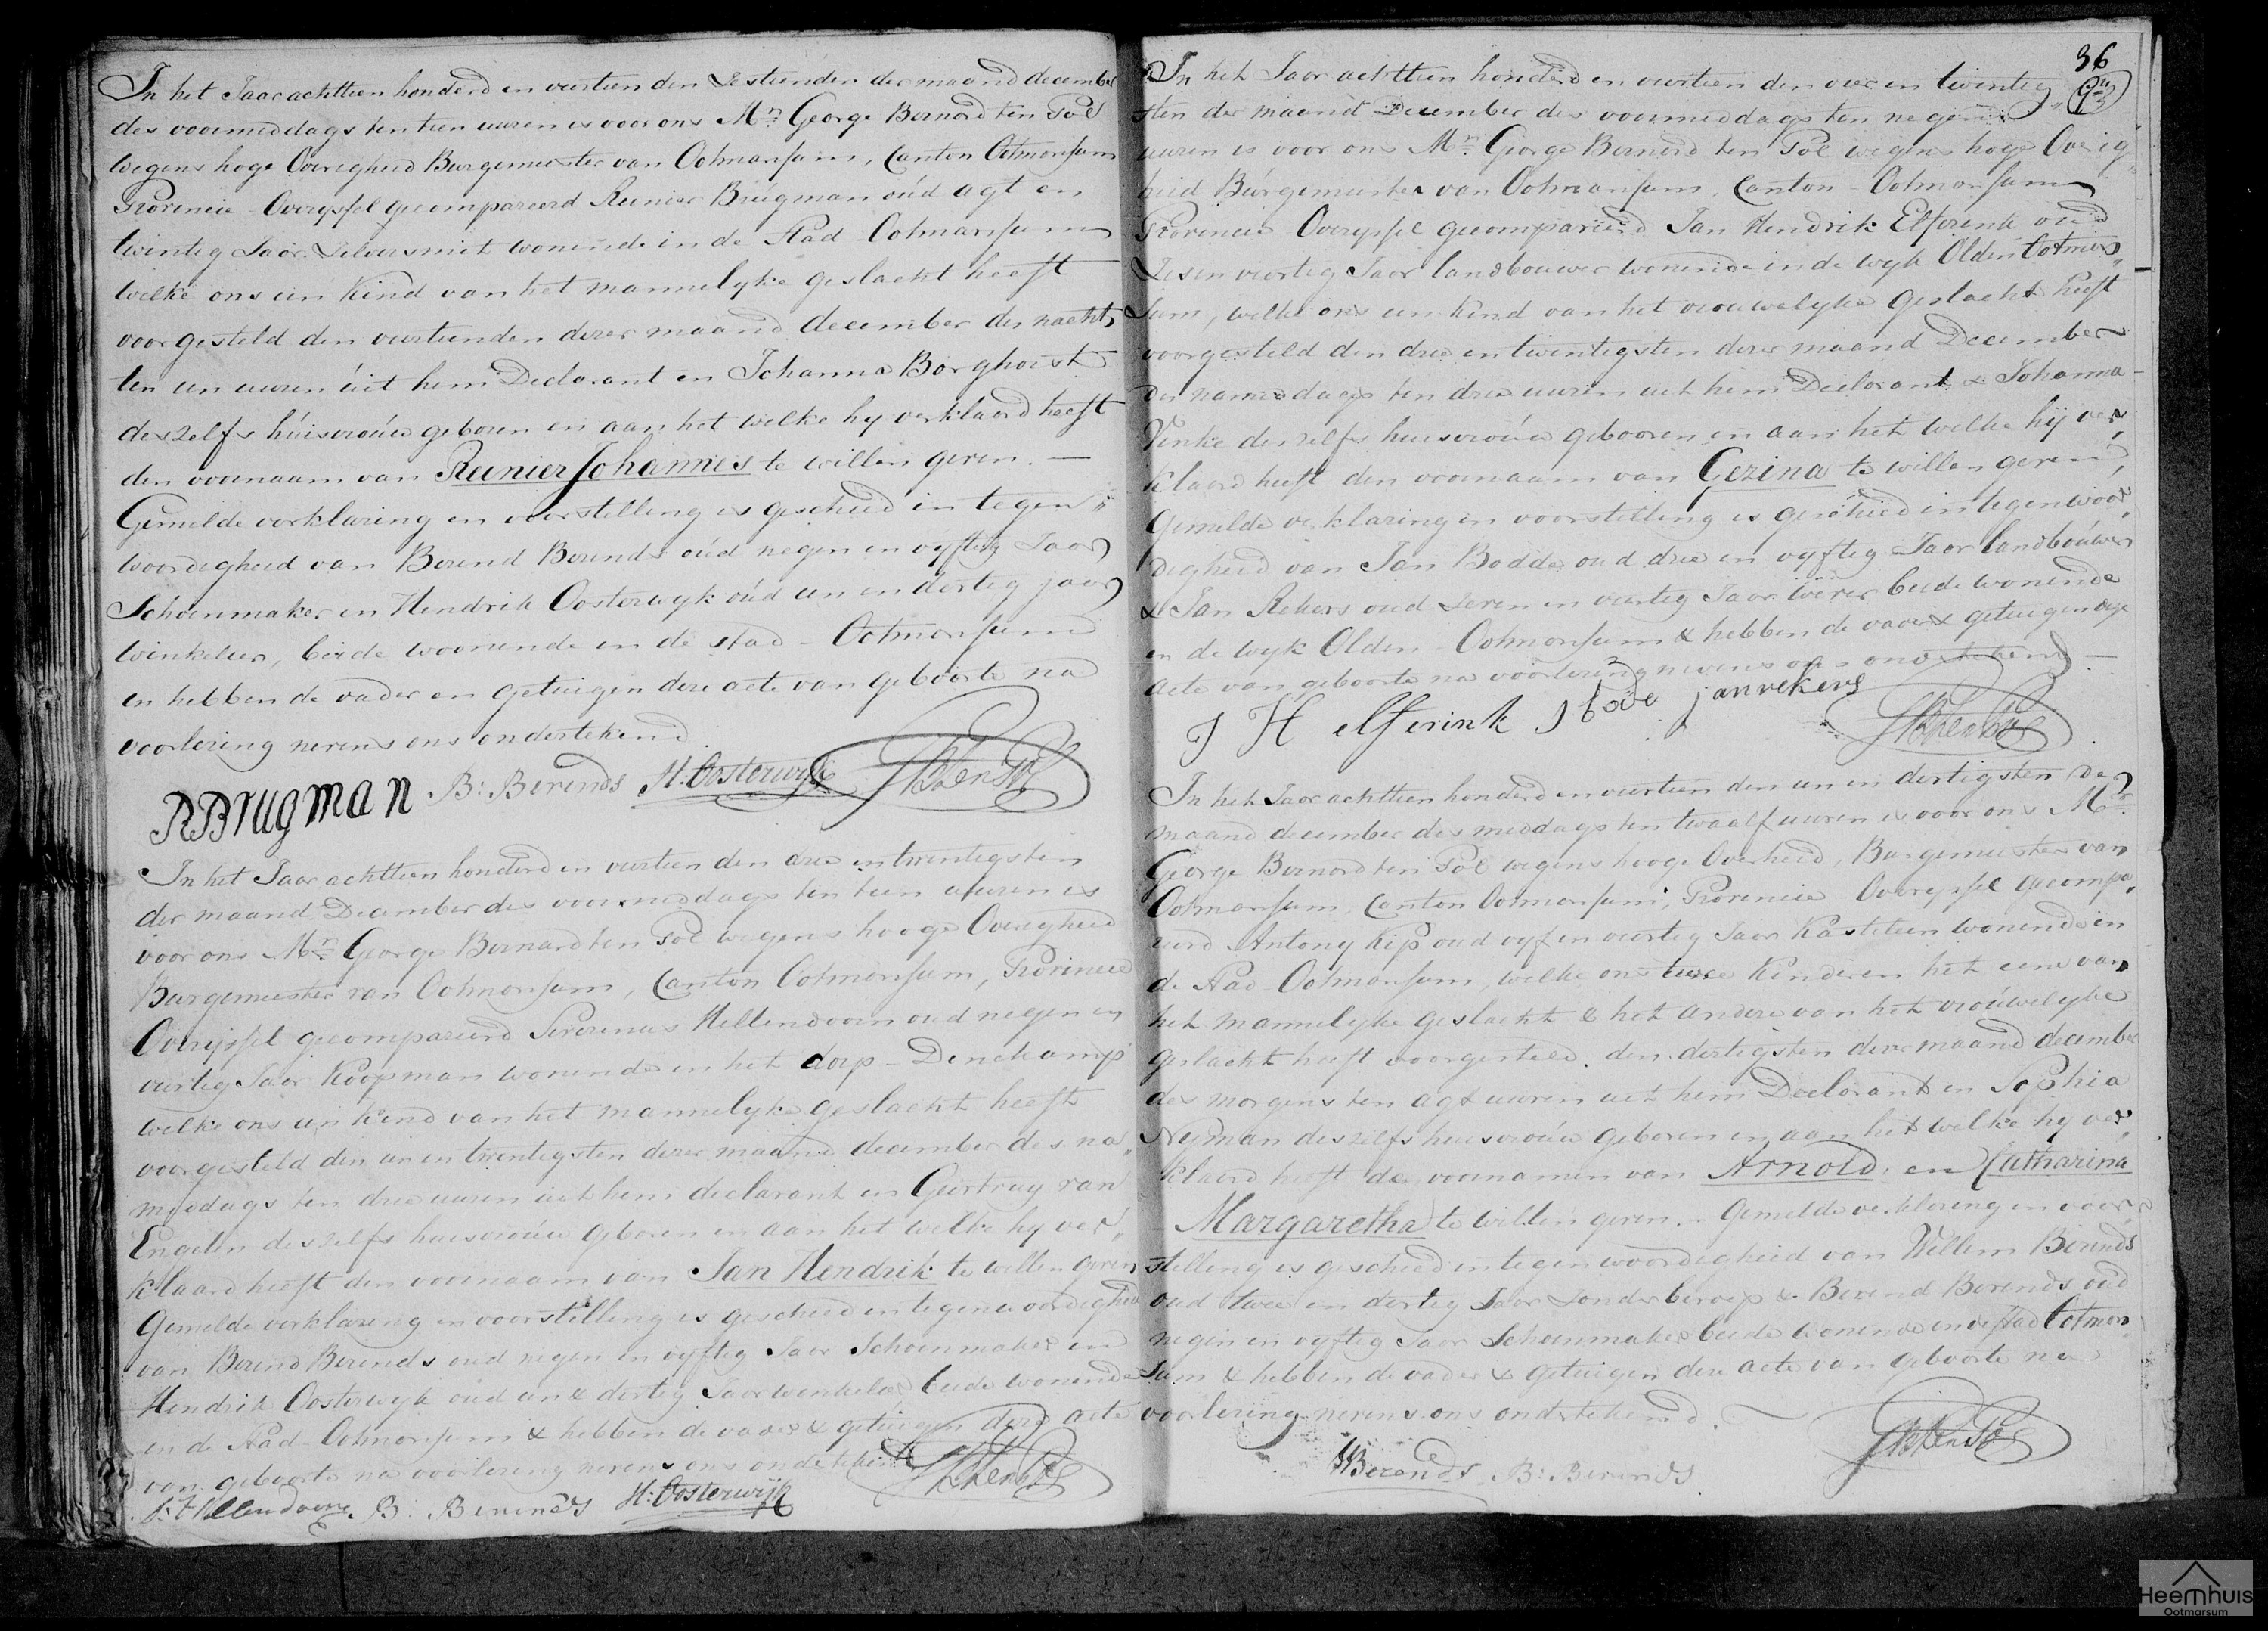 In het Jaar achttien honderd en veertien den Sestienden der maand december
des voormiddags ten tien uuren is voor ons Mr. George Bernard ten Pol
wegens hoge Overigheid Burgemeester van Ootmarsum, Canton Ootmarsum
Provincie Overyssel gecompareerd Reinier Brugman oud agt en
twintig Jaar Silversmit wonende in de Stad Ootmarsum
welke ons een Kind van het mannelyke geslacht heeft
voorgesteld den veertienden dezer maand december des nachts
ten een uuren uit hem Declarant en Johanna Borghorst
deszelfs huisvrouw geboren en aan het welke hy verklaard heeft
den voornaam van Reinier Johannes te willen geven. —
Gemelde verklaring en voorstelling is geschied in tegen„
woordigheid van Berend Berends oud negen en vyftig Jaar
Schoenmaker en Hendrik Oosterwyk oud een en dertig jaar
winkelier, beide woonende in de stad - Ootmarsum
en hebben de vader en getuigen deze acte van geboorte na
voorlezing nevens ons ondertekend
R BRugman B: Berends H: Oosterwijk GB ten Pol
In het Jaar achttien honderd en veertien den drie en twintigsten
der maand December des voormiddags ten tien uuren is
voor ons Mr. George Bernard ten Pol wegens hooge Overigheid
Burgemeester van Ootmarsum, Canton Ootmarsum, Provincie
Overijssel gecompareerd Serverinus Hellendoorn oud negen en
veertig Jaar Koopman wonende in het dorp - Denekamp
welke ons een kind van het mannelyke geslacht heeft
voorgesteld den een en twintigsten dezer maand december des na„
middags ten drie uuren uit hem declarant en Geertruy van
Engelen deszelfs huisvrouw geboren en aan het welke hy ver„
klaard heeft den voornaam van Jan Hendrik te willen geven
Gemelde verklaring en voorstelling is geschied in tegenwoordigheid
van Berend Berends oud negen en vyftig Jaar Schoenmaker en
Hendrik Oosterwyk oud een & dertig Jaar winkelier beide wonende
in de Stad - Ootmarsum & hebben de vader & getuigen deze acte
van geboorte na voorlezing nevens ons ondertekend
S: Hellendoorn B: Berends H: Oosterwijk GB ten Pol
36
In het Jaar achttien honderd en veertien den vier en twintig„
sten der maand December des voormiddags ten negen
uuren is voor ons Mr. George Bernard ten Pol wegens hoge Overig„
heid Burgemeester van Ootmarsum, Canton - Ootmarsum
Provincie Overyssel gecompareerd Jan Hendrik Elferink oud
Ses en veertig Jaar landbouwer wonende in de wyk Olden Ootmar„
sum, welke ons een kind van het vrouwelyke geslacht heeft
voorgesteld den drie en twintigsten dezer maand December
des namiddags ten drie uuren uit hem Declarant & Johanna
Venke deszelfs huisvrouw gebooren en aan het welke hij ver„
klaard heeft den voornaam van Gezina te willen geven,
Gemelde verklaring en voorstelling is geschied in tegenwoor„
digheid van Jan Bodde oud drie en vyftig Jaar landbouwer
& Jan Rekers oud Zeven en veertig Jaar wever beide wonende
in de wyk Olden - Ootmarsum & hebben de vader & getuigen deze
acte van geboorte na voorlezing nevens ons ondertekend —
J H elferink J bode jan rekers GB ten Pol
In het Jaar achttien honderd en veertien den een en dertigsten der
maand december des middags ten twaalf uuren is voor ons Mr.
George Bernard ten Pol wegens hooge Overheid, Burgemeester van
Ootmarsum, Canton Ootmarsum, Provincie Overyssel gecompa„
reerd Antony Kip oud vyf en veertig Jaar Kastelein wonende in
de Stad Ootmarsum, welke ons twee Kinderen het eene van
het mannelyke geslacht & het andere van het vrouwelyke
geslacht heeft voorgesteld. den dertigsten dezer maand december
des morgens ten agt uuren uit hem Declarant en Sophia
Nyman deszelfs huisvrouw geboren en aan het welke hy ver„
klaard heeft de voornamen van Arnold, en Catharina
Margaretha te willen geven. - Gemelde verklaring en voor„
stelling is geschied in tegenwoordigheid van Willem Berends
oud twee en dertig Jaar Sonder beroep & Berend Berends oud
negen en vyftig Jaar Schoenmaker beide wonende in de Stad Ootmar„
sum & hebben de vader & getuigen deze acte van geboorte na
voorlezing nevens ons ondertekend.
WBerends B: Berends GB ten Pol
Heemhuis
Ootmarsum